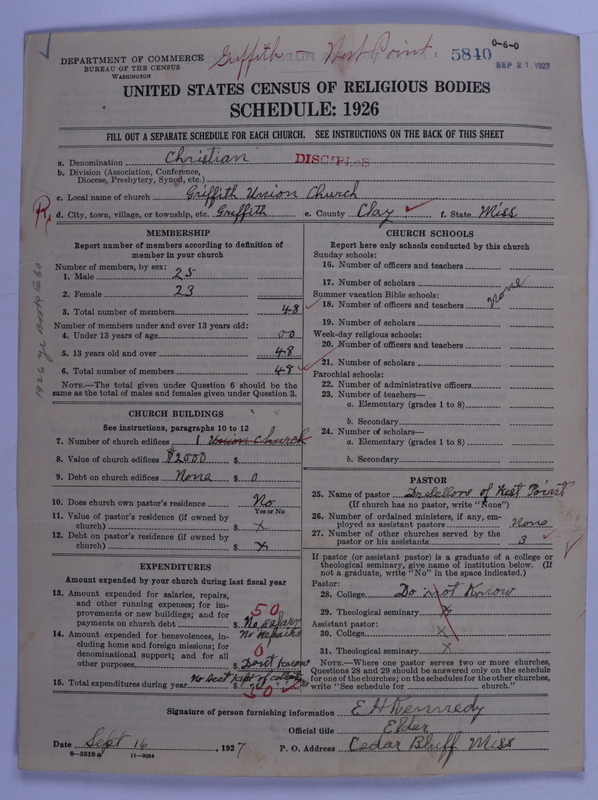 Griffith - West Point.
5840
0-6-0
SEP 21 1927
DEPARTMENT OF COMMERCE
BUREAU OF THE CENSUS
WASHINGTON
UNITED STATES CENSUS OF RELIGIOUS BODIES
SCHEDULE: 1926
FILL OUT A SEPARATE SCHEDULE FOR EACH CHURCH. SEE INSTRUCTIONS ON THE BACK OF THIS SHEET
a. Denomination Christian DISCIPLES
b. Division (Association, Conference,
Diocese, Presbytery, Synod, etc.)
c. Local name of church Griffith Union Church
R,
d. City, town, village, or township, etc. Griffith e. County Clay f. State Miss
MEMBERSHIP
Report number of members according to definition of
member in your church
Number of members, by sex:
1. Male 25
2. Female 23
3. Total number of members 48
Number of members under and over 13 years old:
4. Under 13 years of age 00
5. 13 years old and over 48
6. Total number of members 48
NOTE.—The total given under Question 6 should be the
same as the total of males and females given under Question 3.
CHURCH BUILDINGS
See instructions, paragraphs 10 to 12
7. Number of church edifices 1 Union Church
8. Value of church edifices $2000 $
9. Debt on church edifices None $ 0
10. Does church own pastor's residence No
Yes or No
11. Value of pastor's residence (if owned by
church) $ x
12. Debt on pastor's residence (if owned by
church) $ x
EXPENDITURES
Amount expended by your church during last fiscal year
13. Amount expended for salaries, repairs,
and other running expenses; for im-
provements or new buildings; and for
payments on church debt $ 50 No salary
No repairs
14. Amount expended for benevolences, in-
cluding home and foreign missions; for
denominational support; and for all
other purposes $ 0 Dont know
No acct kept of
15. Total expenditures during year $ 50
CHURCH SCHOOLS
Report here only schools conducted by this church
Sunday schools:
16. Number of officers and teachers
17. Number of scholars
Summer vacation Bible schools:
18. Number of officers and teachers none
19. Number of scholars
Week-day religious schools:
20. Number of officers and teachers
21. Number of scholars
Parochial schools:
22. Number of administrative officers
23. Number of teachers—
a. Elementary (grades 1 to 8)
b. Secondary
24. Number of scholars—
a. Elementary (grades 1 to 8)
b. Secondary
PASTOR
25. Name of pastor of West Point
(If church has no pastor, write "None")
26. Number of ordained ministers, if any, em-
ployed as assistant pastors None
27. Number of other churches served by the
pastor or his assistants 3
If pastor (or assistant pastor) is a graduate of a college or
theological seminary, give name of institution below. (If
not a graduate, write "No" in the space indicated.)
Pastor:
28. College Do not Know
29. Theological seminary x
Assistant pastor:
30. College x
31. Theological seminary x
NOTE.—Where one pastor serves two or more churches,
Questions 28 and 29 should be answered only on the schedule
for one of the churches; on the schedules for the other churches,
write "See schedule for church."
Signature of person furnishing information E H Kennedy
Official title Elder
Date Sept 16, 1927 P. O. Address Cedar Bluff Miss
8—5318 A 11—9034